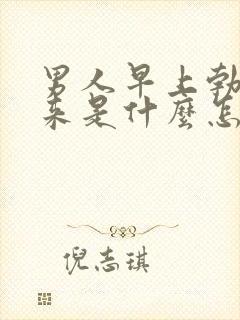 男人早上勃
来是什麼怎
倪志琪